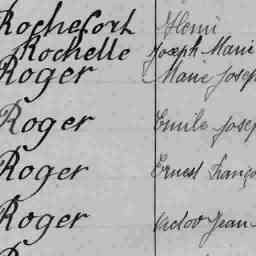 Rochefort Henri
Rochelle Joseph Marie
Roger Marie Josep
Roger Emile Josep
Roger Ernest Franço
Roger Victor Jean